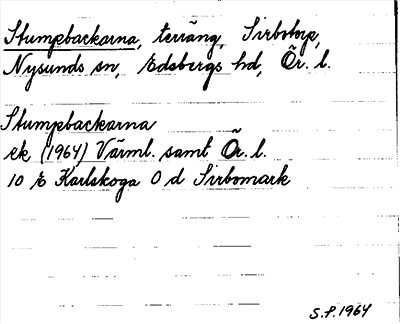 Stumpbackarna, terräng, Sirbotorp,
Nysunds sn, Edsbergs hd, Ör. l.
Stumpbackarna
ek (1964) Värml. samt Ör. l.
10 E Karlskoga 0 d Sirbomark
S.P. 1964